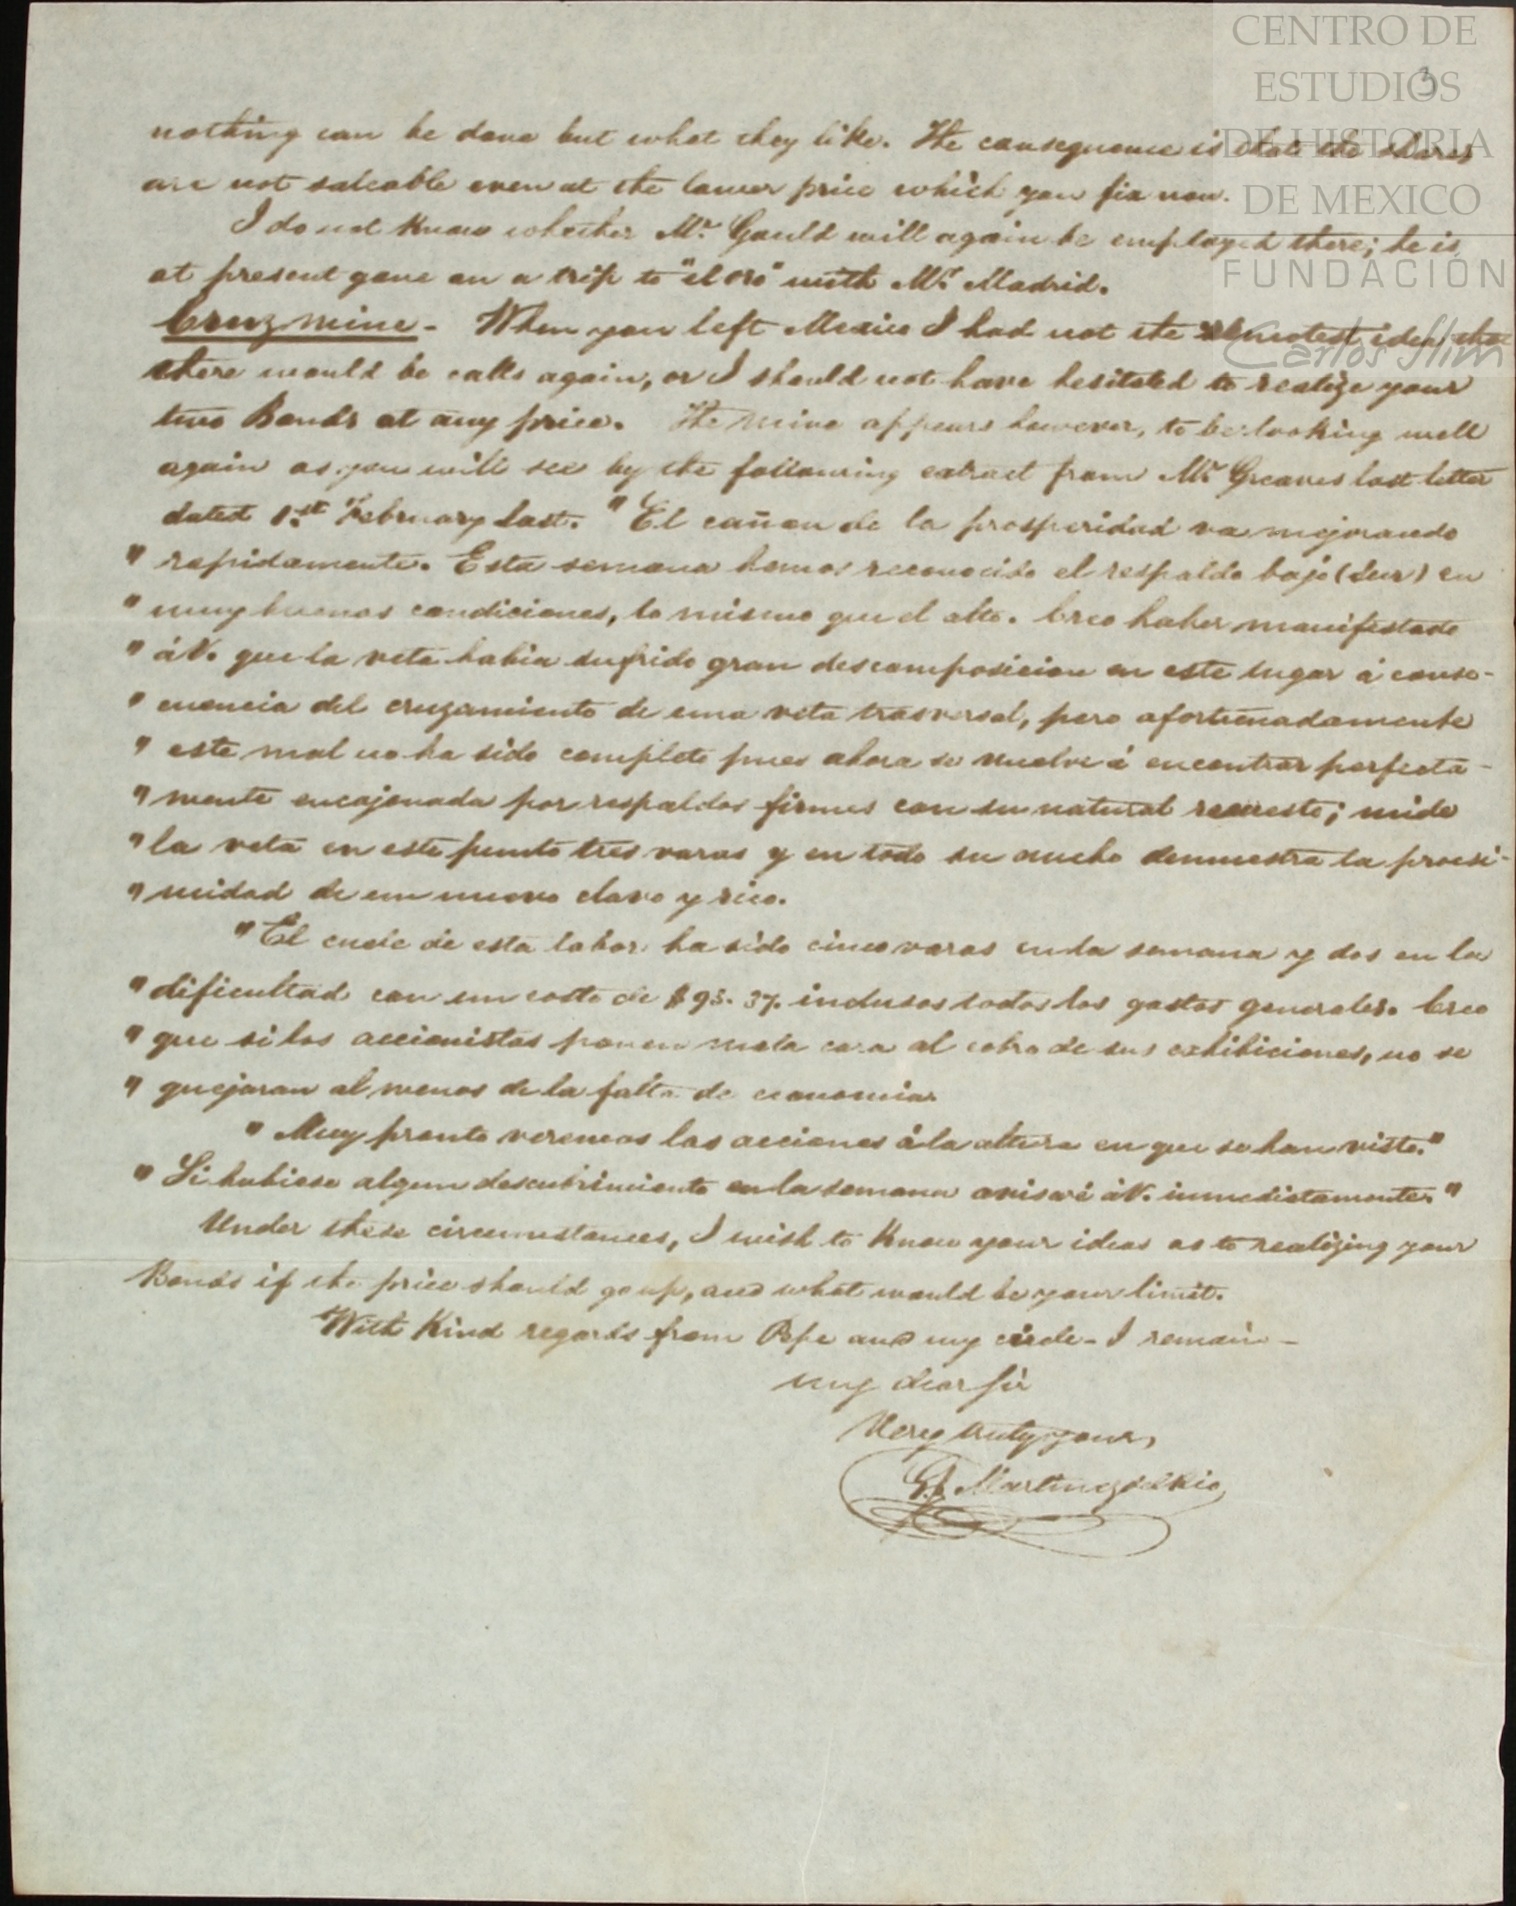 CENTRO DE
ESTUDIOS
DE HISTORIA
DE MEXICO
FUNDACIÓN
Carlos Slim
3
nothing can be done but what they like. The consequence is that the shares
are not saleable even at the lower price which you fix now.
I do not know whether Mr. Gould will again be employed there; he is
at present gone on a trip to "el oro" with Mr. Madrid.
Cruz mine - When you left Mexico I had not the remotest idea that
there would be calls again, or I should not have hesitated to realize your
two Bonds at any price. The mine appears however, to be looking well
again as you will see by the following extract from Mr. Greaves last letter
dated 1st. February last. "El cañon de la prosperidad va mejorando
" rapidamente. Esta semana hemos reconocido el respaldo bajo (Sur) en
" muy buenas condiciones, lo mismo que el alto. Creo haber manifestado
" á V. que la veta habia sufrido gran descomposicion en este lugar á conse-
" cuencia del cruzamiento de una veta trasversal, pero afortunadamente
" este mal no ha sido completo pues ahora se vuelve á encontrar perfecta-
" mente encajonada por respaldos firmes con su natural recuesto; mide
" la veta en este punto tres varas y en todo su ancho demuestra la procsi-
" midad de un nuevo clavo y rico.
"El cuele de esta labor ha sido cinco varas en la semana y dos en la
" dificultad con un costo de $ 95. 37. inclusos todos los gastos generales. Creo
" que si los accionistas ponen mala cara al cobro de sus exhibiciones, no se
" quejaran al menos de la falta de economia.
" Muy pronto veremos las acciones á la altura en que se han visto."
" Si hubiese algun descubrimiento en la semana avisaré á V. inmediatamente."
Under these circumstances, I wish to know your ideas as to realizing your
Bonds if the price should go up, and what would be your limit.
With kind regards from Pepe and my circle - I remain -
my dear Sir
Very truly yours,
Martinez del Rio